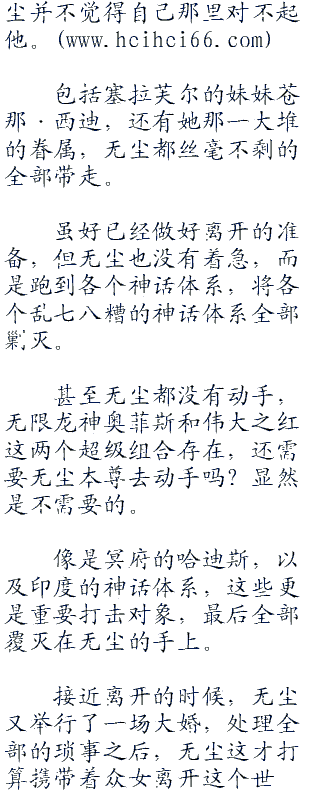 尘并不觉得自己那里对不起
他。(www.hcihci66.com)
包括塞拉芙尔的妹妹苍
那·西迪，还有她那一大堆
的眷属，无尘都丝毫不剩的
全部带走。
虽好已经做好离开的准
备，但无尘也没有着急，而
是跑到各个神话体系，将各
个乱七八糟的神话体系全部
剿灭。
甚至无尘都没有动手，
无限龙神奥菲斯和伟大之红
这两个超级组合存在，还需
要无尘本尊去动手吗？显然
是不需要的。
像是冥府的哈迪斯，以
及印度的神话体系，这些更
是重要打击对象，最后全部
覆灭在无尘的手上。
接近离开的时候，无尘
又举行了一场大婚，处理全
部的琐事之后，无尘这才打
算携带着众女离开这个世